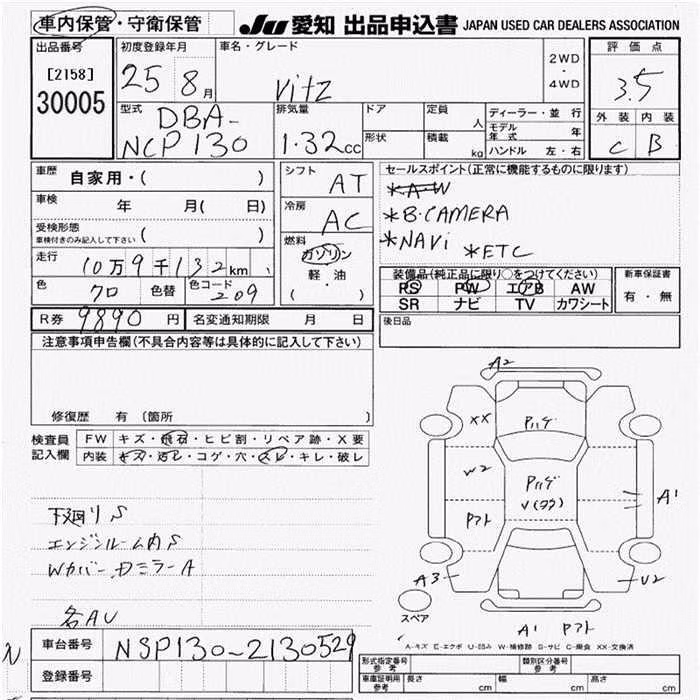 車内保管・守衛保管
JU 愛知 出品申込書 JAPAN USED CAR DEALERS ASSOCIATION
出品番号
[2158]
30005
初度登録年月
25 8月
車名・グレード
Vitz
2WD
・
4WD
評価点
3.5
外装 内装
C B
型式
DBA-
NCP130
排気量
1.32cc
ドア
形状
定員 人
積載 kg
ディーラー・並行
モデル年式 年
ハンドル 左・右
車歴 自家用・( )
車検 年 月( 日)
受検形態
車検付きのみ記入して下さい ( )
走行 10万9千132km
色 クロ 色替 色コード 209
シフト AT
冷房 AC
燃料
ガソリン
軽・油
( ・ )
セールスポイント(正常に機能するものに限ります)
*AW
*B.CAMERA
*NAVi *ETC
装備品(純正品に限り○をつけてください)
PS PW エアB AW
SR ナビ TV カワシート
新車保証書
有・無
後日品
R券 9890円 名変通知期限 月 日
注意事項申告欄(不具合内容等は具体的に記入して下さい)
修復歴 有 〔箇所 〕
検査員記入欄
FW キズ・飛石・ヒビ割・リペア跡・X要
内装 キズ・汚レ・コゲ・穴・スレ・キレ・破レ
下廻りS
エンジンルーム内S
Wカバー、Dミラー A
各AU
A2
XX
Pハゲ
W2
Pハゲ
V(ワク)
Pフト
A1
A3
U2
スペア
A1 Pフト
A-キズ E-エクボ U-凹み W-補修跡 S-サビ C-腐食 XX-交換済
車台番号 NSP130-2130529
登録番号
形式指定番号 参考
類別区分番号 参考
車庫証明用 参考 長さ cm 幅 cm 高さ cm